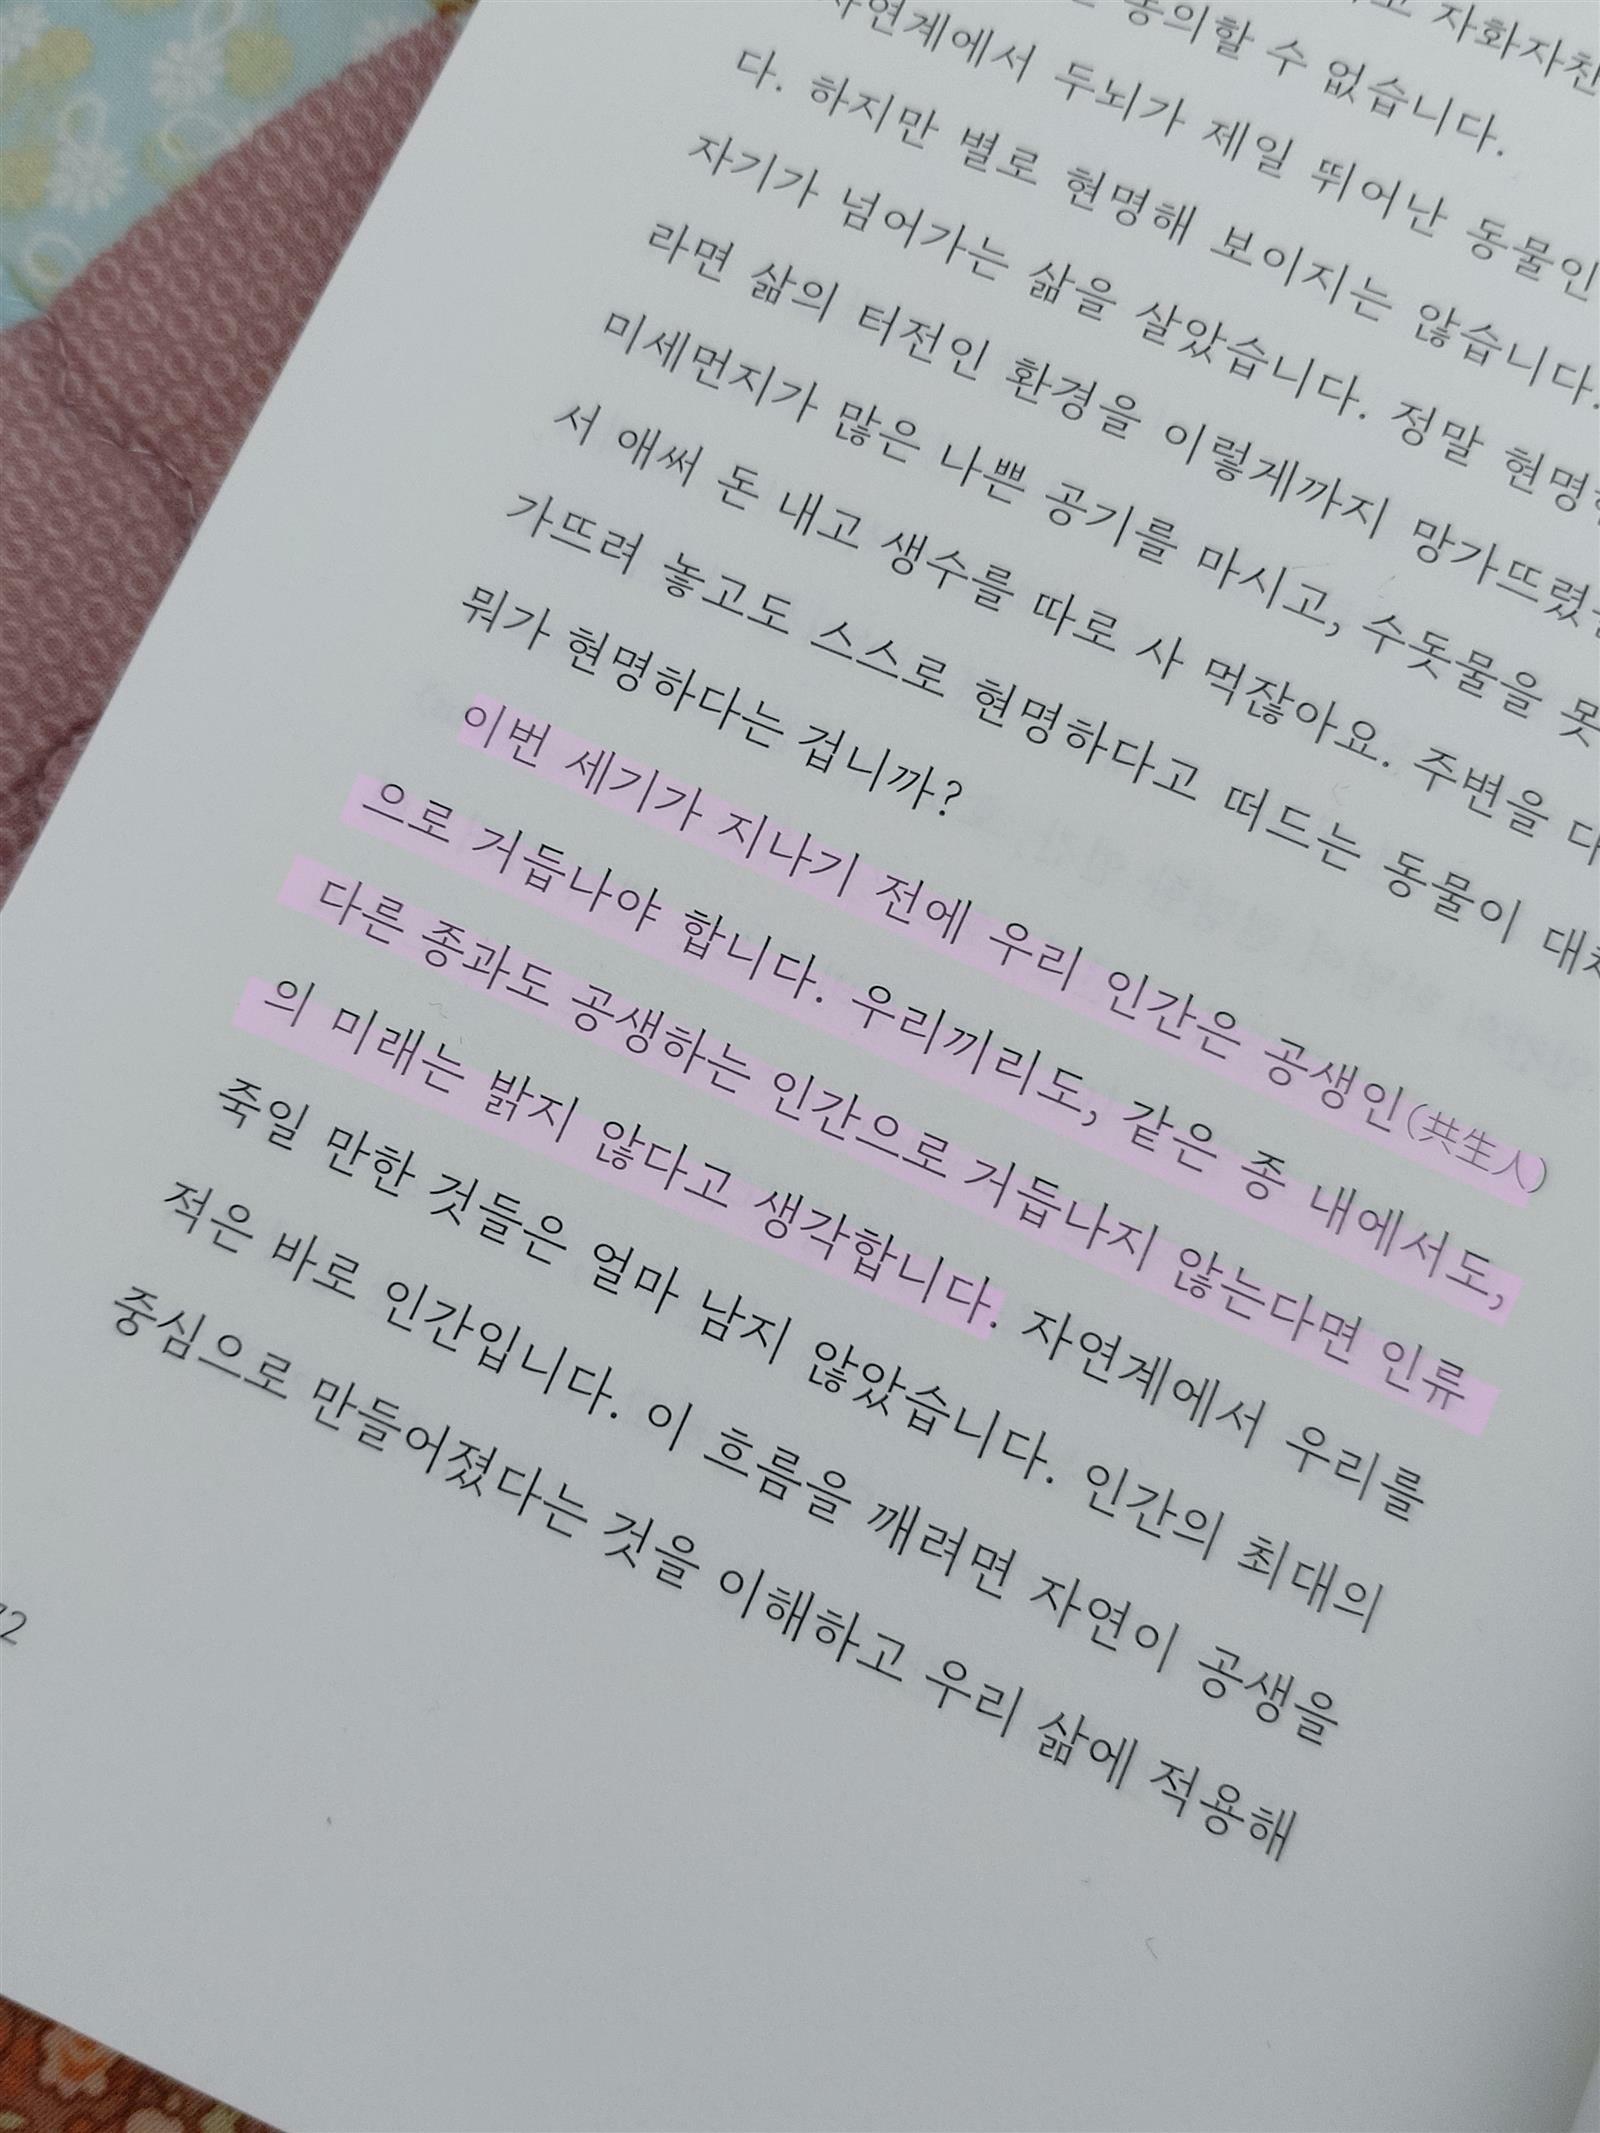 자화자찬
동의할 수 없습니다.
자연계에서 두뇌가 제일 뛰어난 동물인
다. 하지만 별로 현명해 보이지는 않습니다.
자기가 넘어가는 삶을 살았습니다. 정말 현명
라면 삶의 터전인 환경을 이렇게까지 망가뜨렸
미세먼지가 많은 나쁜 공기를 마시고, 수돗물을 못
서 애써 돈 내고 생수를 따로 사 먹잖아요. 주변을 다
가뜨려 놓고도 스스로 현명하다고 떠드는 동물이 대체
뭐가 현명하다는 겁니까?
이번 세기가 지나기 전에 우리 인간은 공생인(共生人)
으로 거듭나야 합니다. 우리끼리도, 같은 종 내에서도,
다른 종과도 공생하는 인간으로 거듭나지 않는다면 인류
의 미래는 밝지 않다고 생각합니다. 자연계에서 우리를
죽일 만한 것들은 얼마 남지 않았습니다. 인간의 최대의
적은 바로 인간입니다. 이 흐름을 깨려면 자연이 공생을
중심으로 만들어졌다는 것을 이해하고 우리 삶에 적용해